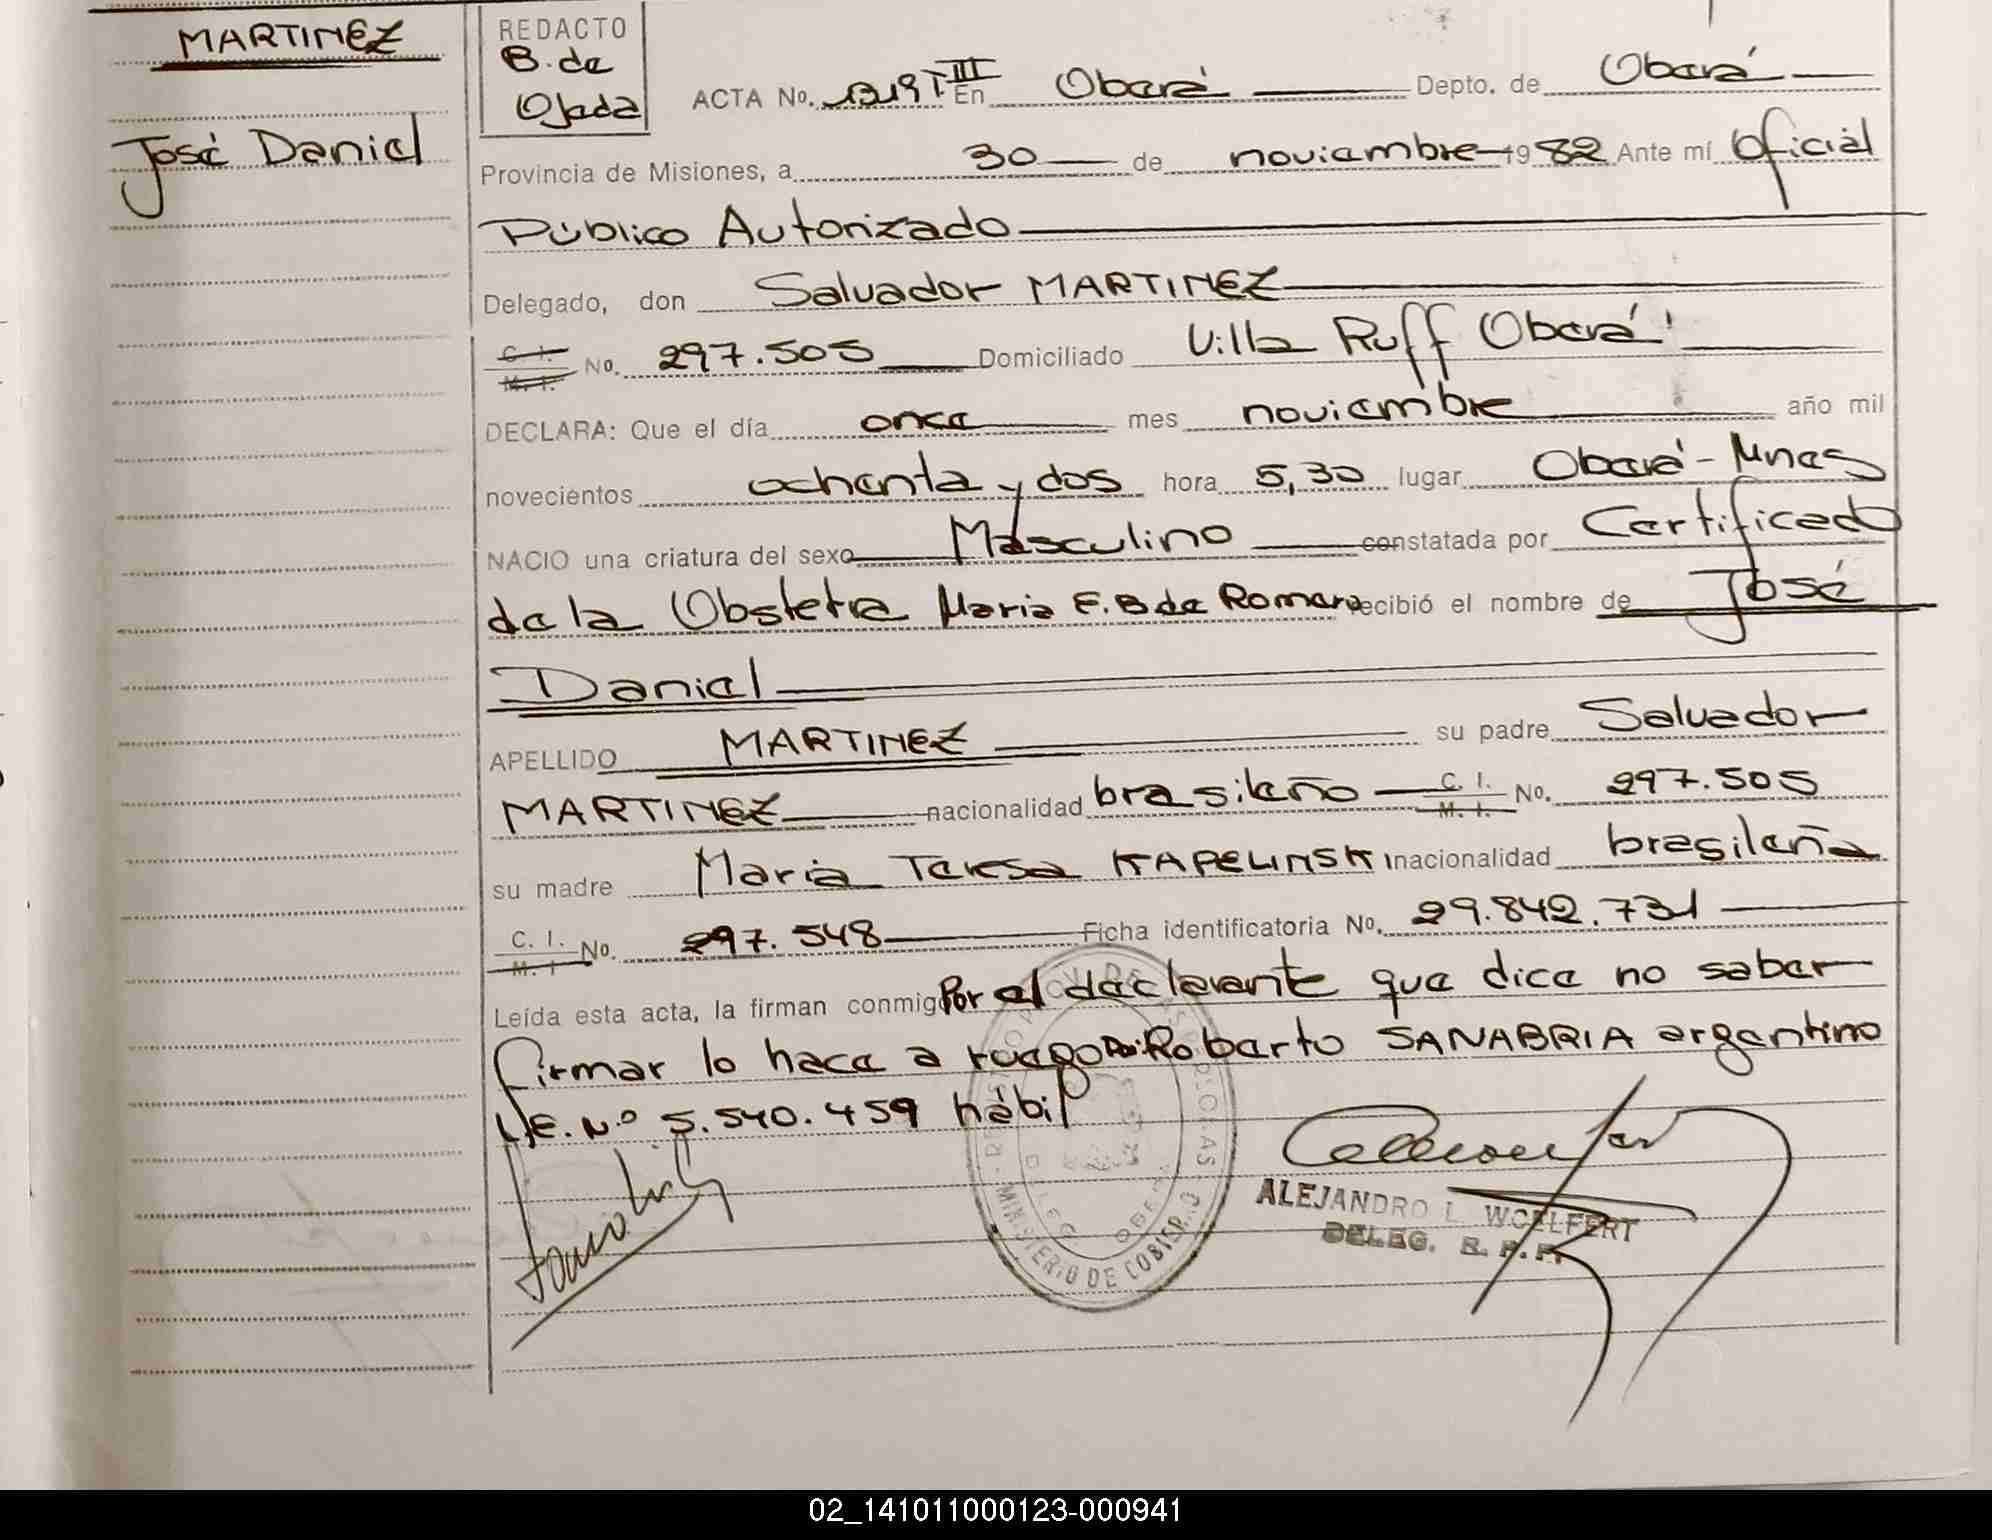 MARTINEZ
José Daniel
REDACTO
B. de
Ojeda
ACTA No. 1319 T III En Oberá Depto. de Oberá
Provincia de Misiones, a 30 de noviembre 1982 Ante mí Oficial
Público Autorizado
Delegado, don Salvador MARTINEZ
C. I. M. I. No. 297.505 Domiciliado Villa Ruff Oberá
DECLARA: Que el día once mes noviembre año mil
novecientos ochenta y dos hora 5,30 lugar Oberá - Mnes
NACIO una criatura del sexo Masculino constatada por Certificado
de la Obstetra Maria E. B de Romero recibió el nombre de José
Daniel
APELLIDO MARTINEZ su padre Salvador
MARTINEZ nacionalidad brasileño C. I. M. I. No. 297.505
su madre Maria Teresa KAPELINSKI nacionalidad brasileña
C. I. M. I No. 297.548 Ficha identificatoria No. 29.842.731
Leída esta acta, la firman conmigo Por el declarante que dice no saber
firmar lo hace a ruego Don Roberto SANABRIA argentino
L.E. Nº 5.540.459 hábil
MINISTERIO DE GOBIERNO
ALEJANDRO L. WOELFERT
DELEG. R. P. P.
02_141011000123-000941